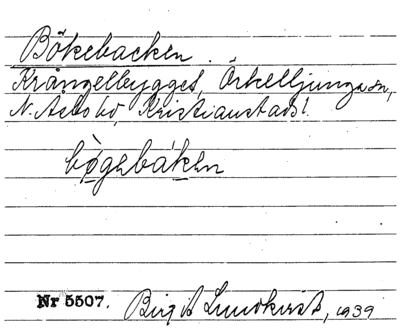 Bökebacken.
Krångelbygget, Örkelljunga sn,
N. Åsbo hd, Kristianstads l.
bògebáken
Nr 5507. Birgit Lundkvist, 1939